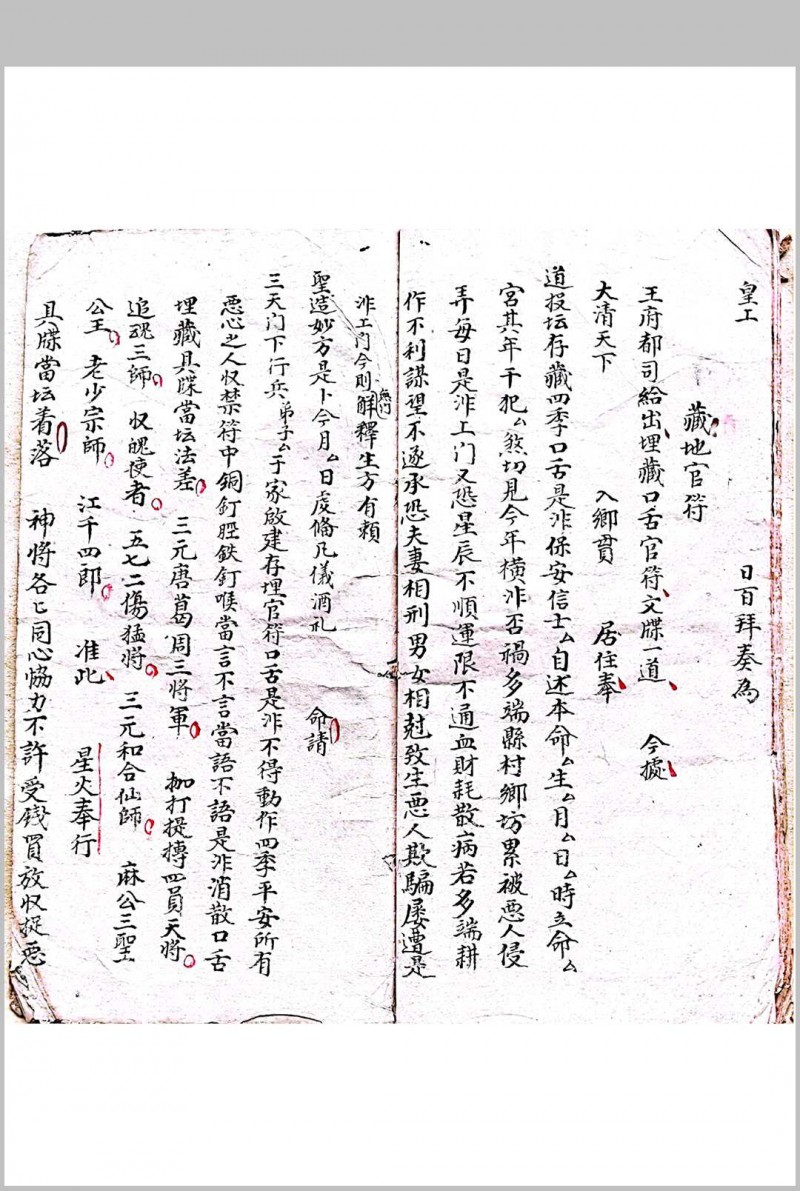 皇工　　日百拜奏為
藏地官符
王府都司給出埋藏口舌官符文牒一道　今據
大清天下　入鄉貫　居住奉
道投坛存藏四季口舌是非保安信士厶自述本命厶生厶月厶日厶時立命厶
宮其年干犯厶煞切見今年橫非否禍多端縣村鄉坊累被恶人侵
弄每日是非工门又恐星辰不順運限不通血財耗散病若多端耕
作不利謀望不逐承恐夫妻相刑男女相尅致生恶人欺騙屡遭是
非工门今則無门解釋生方有賴
聖造妙方是卜今月厶日虔俻凡儀酒礼　命請
三天门下行兵弟子厶于家啟建存埋官符口舌是非不得動作四季平安所有
恶心之人収禁符中銅釘脛鉄釘喉當言不言當語不語是非消散口舌
埋藏具牒當坛法差　三元唐葛周三將軍　枷打捉搏四員天將
追魂三師　収魄使者　五七二傷猛將　三元和合仙師　麻公三聖
公王　老少宗師　江千四郎　准此　星火奉行
具牒當坛着落　神將各匕同心恊力不許受錢買放収捉恶